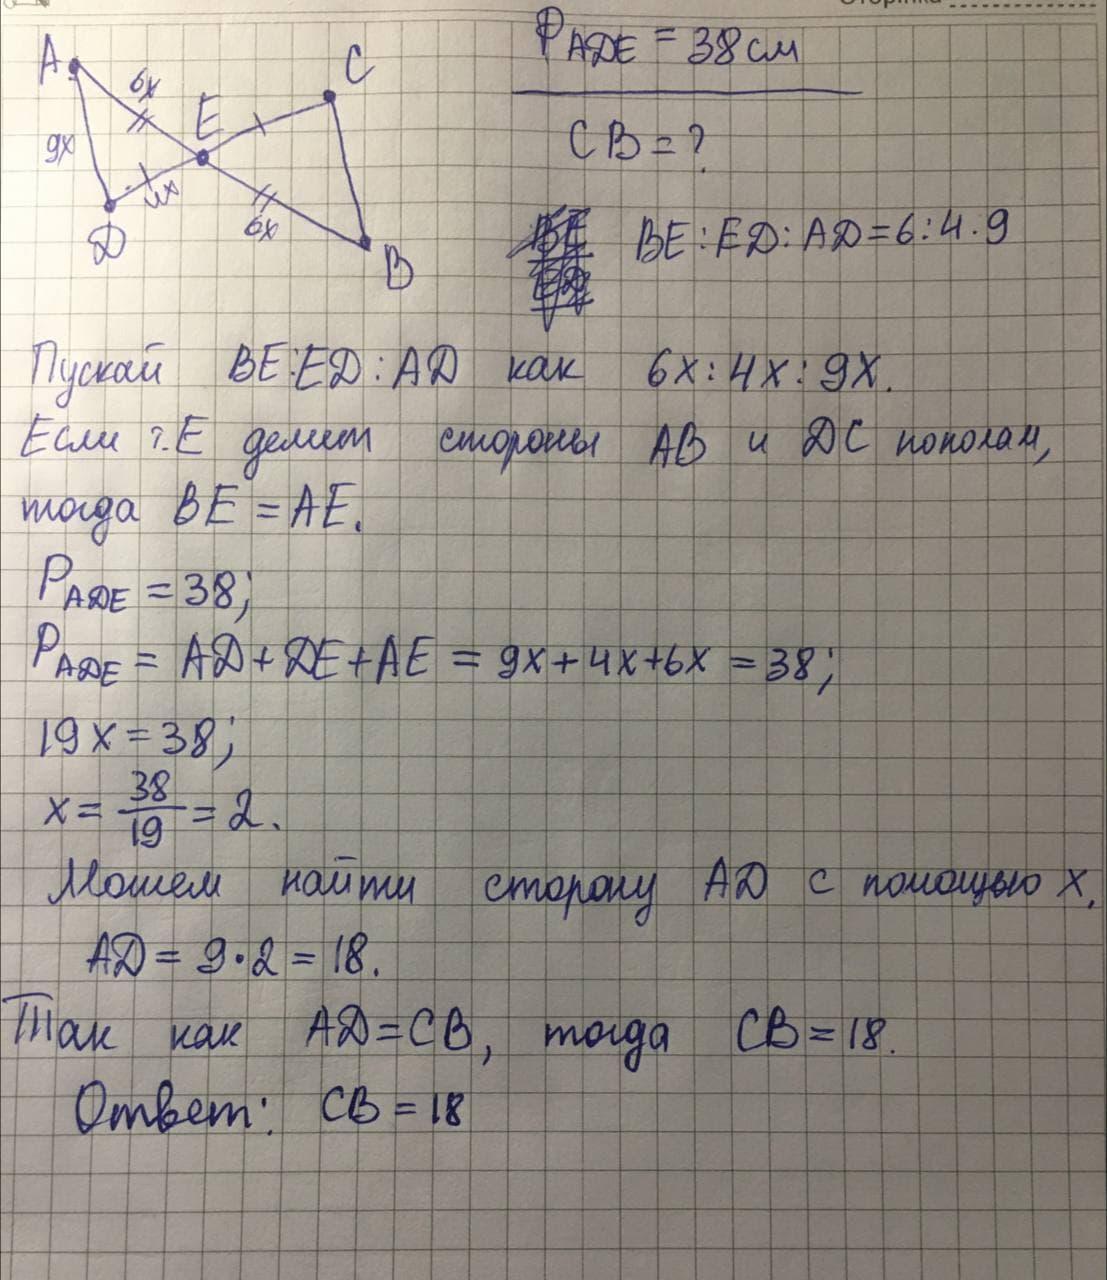 Сторінка
P_ADE = 38 см
CB = ?
BE : ED : AD = 6 : 4 . 9
A
6x
E
C
9x
4x
D
6x
B
Пускай BE : ED : AD как 6x : 4x : 9x.
Если т. E делит стороны AB и DC пополам,
тогда BE = AE.
P_ADE = 38;
P_ADE = AD + DE + AE = 9x + 4x + 6x = 38;
19x = 38;
x = 38/19 = 2.
Можем найти сторону AD с помощью x.
AD = 9 • 2 = 18.
Так как AD = CB, тогда CB = 18.
Ответ: CB = 18